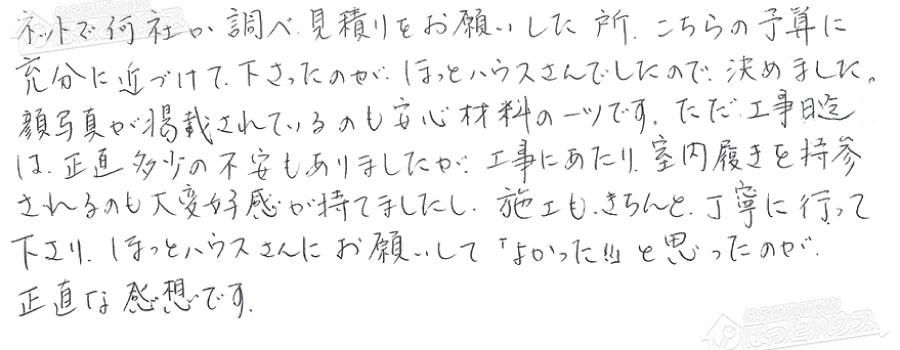 ネットで何社か調べ見積りをお願いした所、こちらの予算に
充分に近づけて、下さったのが、ほっとハウスさんでしたので、決めました。
顔写真が掲載されているのも安心材料の一ツです。ただ工事日迄
は、正直多少の不安もありましたが、工事にあたり、室内履きを持参
されるのも大変好感が持てましたし、施工も、きちんと、丁寧に行って
下さり、ほっとハウスさんにお願いして「よかった!!」と思ったのが、
正直な感想です。
住宅設備専門店
ほっとハウス